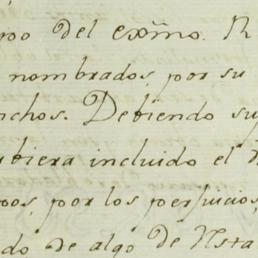 roo del exm̃o. R
nombrados, por su
nchos. Debiendo su
ubiera incluido el
oos, por los perjuicios
do de algo de Usta